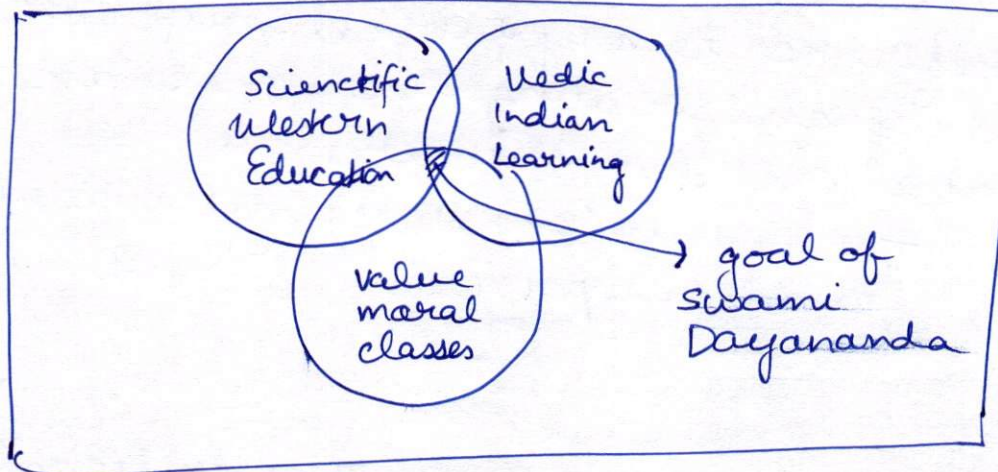 Scienctific
Western
Education
Vedic
Indian
Learning
value
moral
classes
goal of
Swami
Dayananda